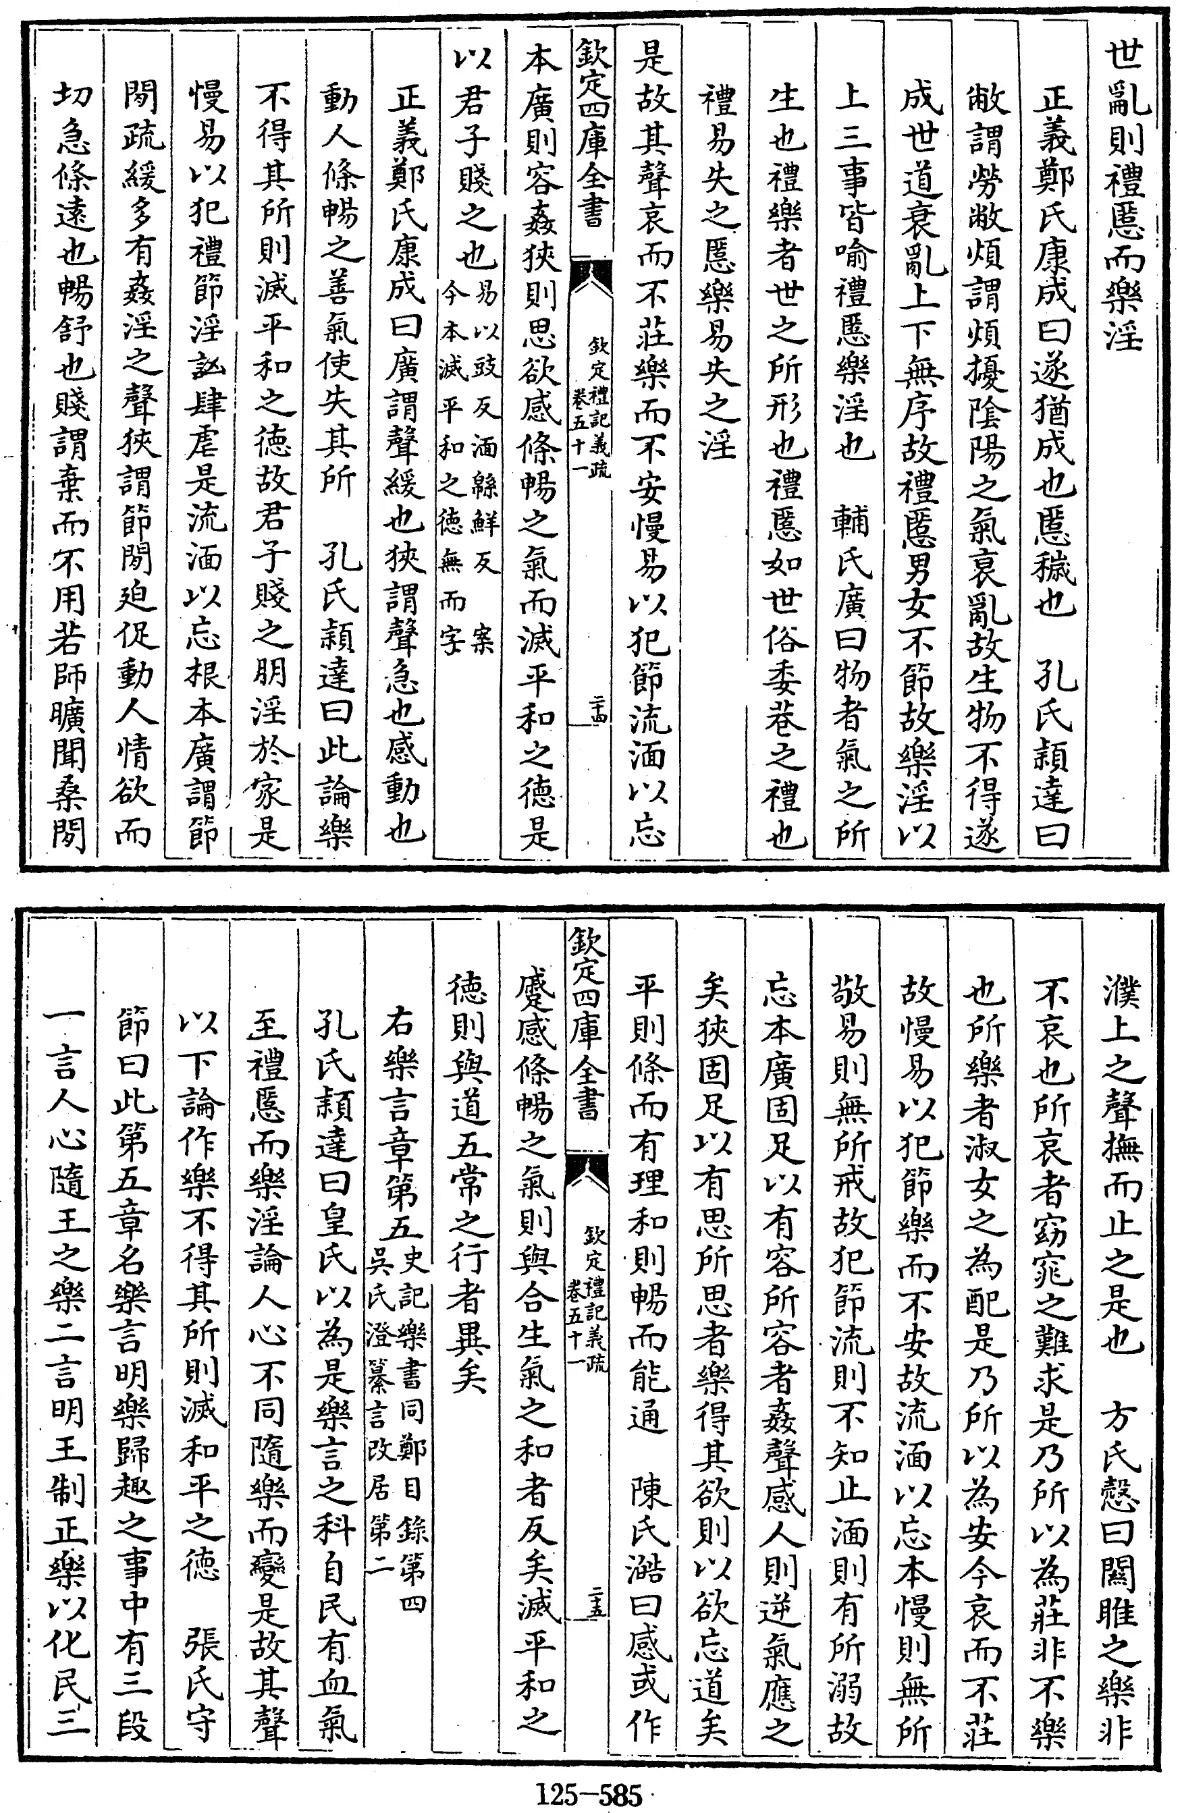 世亂則禮慝而樂淫
正義鄭氏康成曰遂猶成也慝穢也　孔氏頴達曰
敝謂勞敝煩謂煩擾陰陽之氣衰亂故生物不得遂
成世道衰亂上下無序故禮慝男女不節故樂淫以
上三事皆喻禮慝樂淫也　輔氏廣曰物者氣之所
生也禮樂者世之所形也禮慝如世俗委巷之禮也
禮易失之慝樂易失之淫
是故其聲哀而不莊樂而不安慢易以犯節流湎以忘
欽定四庫全書　欽定禮記義疏　卷五十一　二十四
本廣則容姦狹則思欲感條暢之氣而滅平和之德是
以君子賤之也易以豉反湎緜鮮反　案今本滅平和之德無而字
正義鄭氏康成曰廣謂聲緩也狹謂聲急也感動也
動人條暢之善氣使失其所　孔氏頴達曰此論樂
不得其所則滅平和之德故君子賤之朋淫於家是
慢易以犯禮節淫酗肆虐是流湎以忘根本廣謂節
閒疏緩多有姦淫之聲狹謂節閒廹促動人情欲而
切急條遠也暢舒也賤謂棄而不用若師曠聞桑閒
濮上之聲撫而止之是也　方氏慤曰關雎之樂非
不哀也所哀者窈窕之難求是乃所以為莊非不樂
也所樂者淑女之為配是乃所以為安今哀而不莊
故慢易以犯節樂而不安故流湎以忘本慢則無所
敬易則無所戒故犯節流則不知止湎則有所溺故
忘本廣固足以有容所容者姦聲感人則逆氣應之
矣狹固足以有思所思者樂得其欲則以欲忘道矣
平則條而有理和則暢而能通　陳氏澔曰感或作
欽定四庫全書　欽定禮記義疏　卷五十一　二十五
蹙感條暢之氣則與合生氣之和者反矣滅平和之
德則與道五常之行者異矣
右樂言章第五史記樂書同鄭目錄第四吳氏澄纂言改居第二
孔氏頴達曰皇氏以為是樂言之科自民有血氣
至禮慝而樂淫論人心不同隨樂而變是故其聲
以下論作樂不得其所則滅和平之德　張氏守
節曰此第五章名樂言明樂歸趣之事中有三段
一言人心隨王之樂二言明王制正樂以化民三
125-585